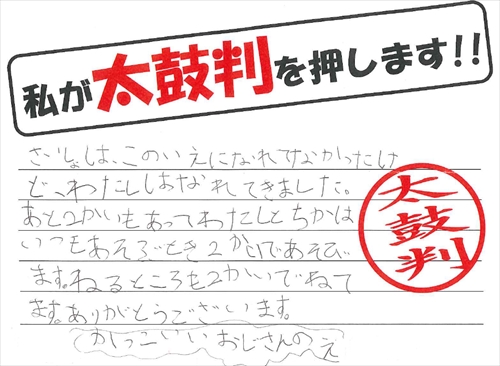 私が太鼓判を押します!!
さいしょは、このいえになれてなかったけ
ど、わたしはなれてきました。
あと2かいもあってわたしとちかは
いつもあそぶとき2かいであそび
ます。ねるところも2かいでねて
ます。ありがとうございます。
かっこいいおじさんのえ
太鼓判